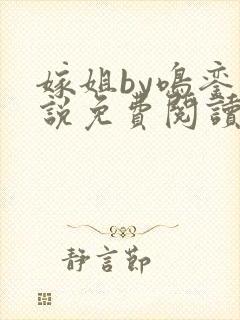 嫁姐by鸣銮
說免費閱讀
静言節